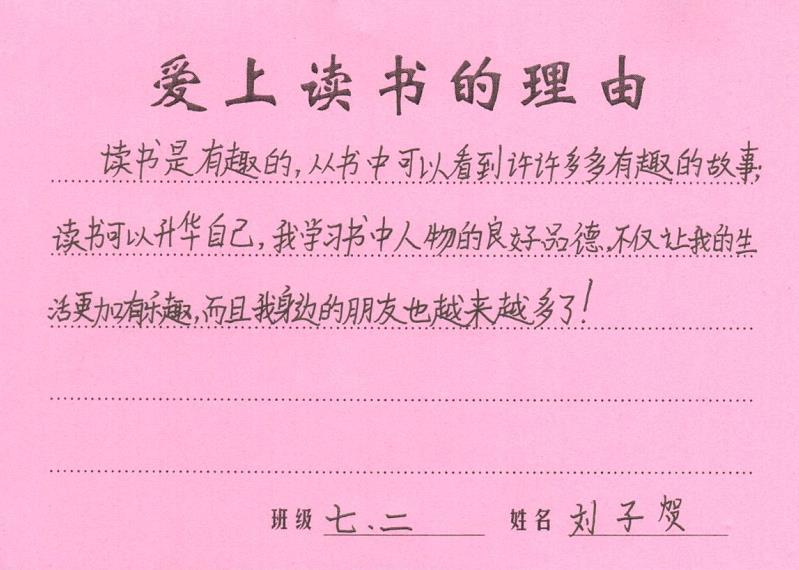 爱上读书的理由
读书是有趣的,从书中可以看到许许多多有趣的故事;
读书可以升华自己,我学习书中人物的良好品德,不仅让我的生
活更加有乐趣,而且我身边的朋友也越来越多了!
班级 七.二 姓名 刘子贺